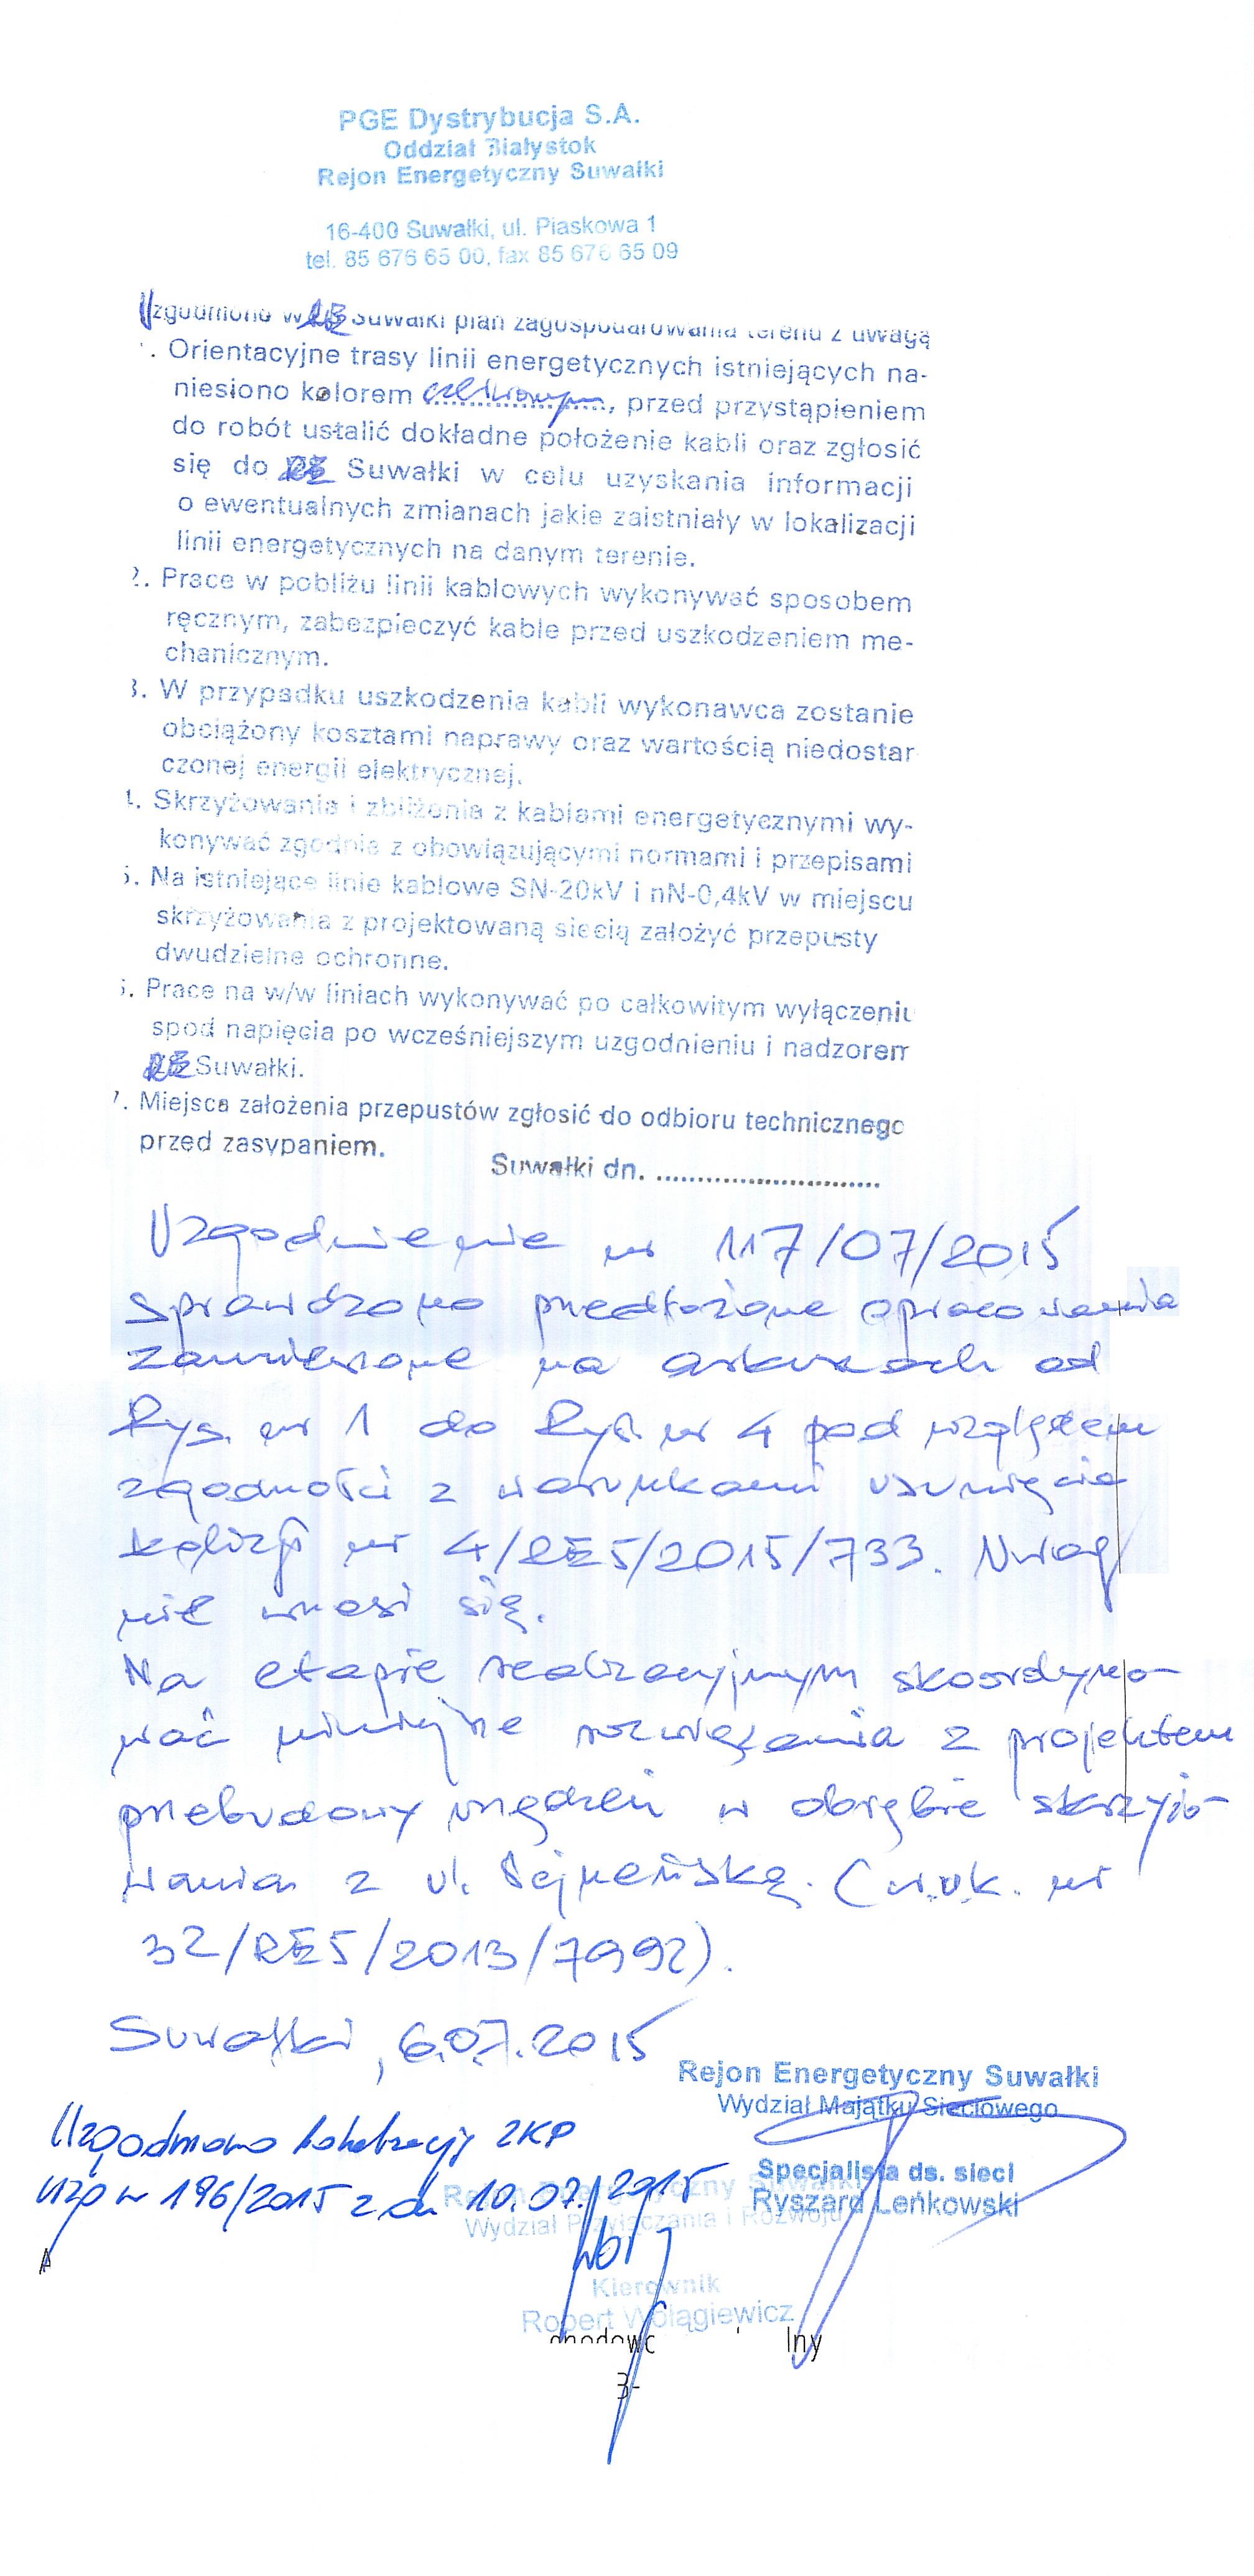 PGE Dystrybucja S.A.
Oddział Białystok
Rejon Energetyczny Suwałki
16-400 Suwałki, ul. Piaskowa 1
tel. 85 676 65 00, fax 85 676 65 09
Uzgodniono w RE Suwałki plan zagospodarowania terenu z uwagą
. Orientacyjne trasy linii energetycznych istniejących na-
niesiono kolorem czerwonym, przed przystąpieniem
do robót ustalić dokładne położenie kabli oraz zgłosić
się do RE Suwałki w celu uzyskania informacji
o ewentualnych zmianach jakie zaistniały w lokalizacji
linii energetycznych na danym terenie.
2. Prace w pobliżu linii kablowych wykonywać sposobem
ręcznym, zabezpieczyć kable przed uszkodzeniem me-
chanicznym.
3. W przypadku uszkodzenia kabli wykonawca zostanie
obciążony kosztami naprawy oraz wartością niedostar
czonej energii elektrycznej.
4. Skrzyżowania i zbliżenia z kablami energetycznymi wy-
konywać zgodnie z obowiązującymi normami i przepisami
5. Na istniejące linie kablowe SN-20kV i nN-0,4kV w miejscu
skrzyżowania z projektowaną siecią założyć przepusty
dwudzielne ochronne.
6. Prace na w/w liniach wykonywać po całkowitym wyłączeniu
spod napięcia po wcześniejszym uzgodnieniu i nadzorem
RE Suwałki.
7. Miejsca założenia przepustów zgłosić do odbioru technicznego
przed zasypaniem.
Suwałki dn. ..............................
Uzgodnienie nr 117/07/2015
Sprawdzono przedłożone opracowania
zamieszczone na arkuszach od
Rys. nr 1 do Rys. nr 4 pod względem
zgodności z warunkami usunięcia
kolizji nr 4/RE5/2015/733. Uwag
nie wnosi się.
Na etapie realizacyjnym skoordyno-
wać niniejsze rozwiązania z projektem
przebudowy urządzeń w obrębie skrzyżo-
wania z ul. Sejneńską. (w.u.k. nr
32/RE5/2013/7992).
Suwałki, 6.07.2015
Rejon Energetyczny Suwałki
Wydział Majątku Sieciowego
Specjalista ds. sieci
Ryszard Leńkowski
Uzgodniono lokalizację ZKP
uzg nr 196/2015 z dn 10.07.2015
Rejon Energetyczny Suwałki
Wydział Przyłączania i Rozwoju
Kierownik
Robert Wołągiewicz
lny
3-